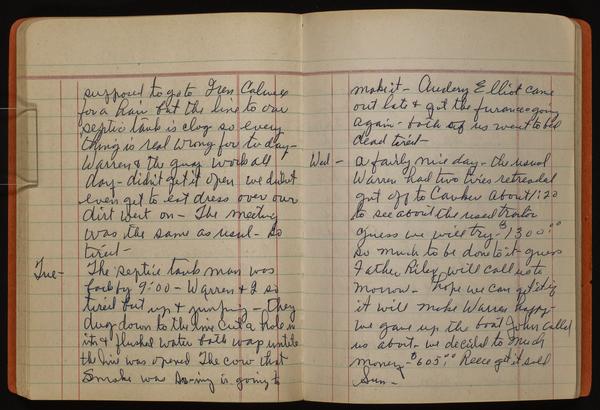 supposed to go to Tress Calmes
for a hair but the line to our
septic tank is clog so every
thing is real wrong for to-day-
Warren & the guay work all
day - didn't get it open we didn't
even get to eat dress over our
dirt went on - The meeting
was the same as usual - So
tired -
Tue - The septic tank man was
back by 9:00 - Warren & I so
tired but up & jumping - they
dug down to the line cut a hole in
it & flushed water both ways until
the line was opened The cow that
Smoke was - ing is going to
make it - Audery Elliot came
out late & got the furance going
again - both of us went to bed
dead tired -
Wed - a fairly nice day - the usual
Warren had two tires retreaded
got off to Canker About 1:20
to see about the used tractor
guess we will try - $1300.00
So much to be done to it - guess
Father Riley will call us to
morrow - hope we can get it if
it will make Warren happy -
we gave up the boat John called
us about - we decided to much
money - $605.00 Reece get it sold
Sun -